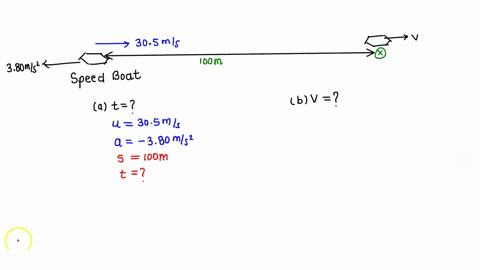 30.5 m/s
V
3.80 m/s²
100m
x
Speed Boat
(a) t = ?
(b) V = ?
u = 30.5 m/s
a = -3.80 m/s²
s = 100m
t = ?